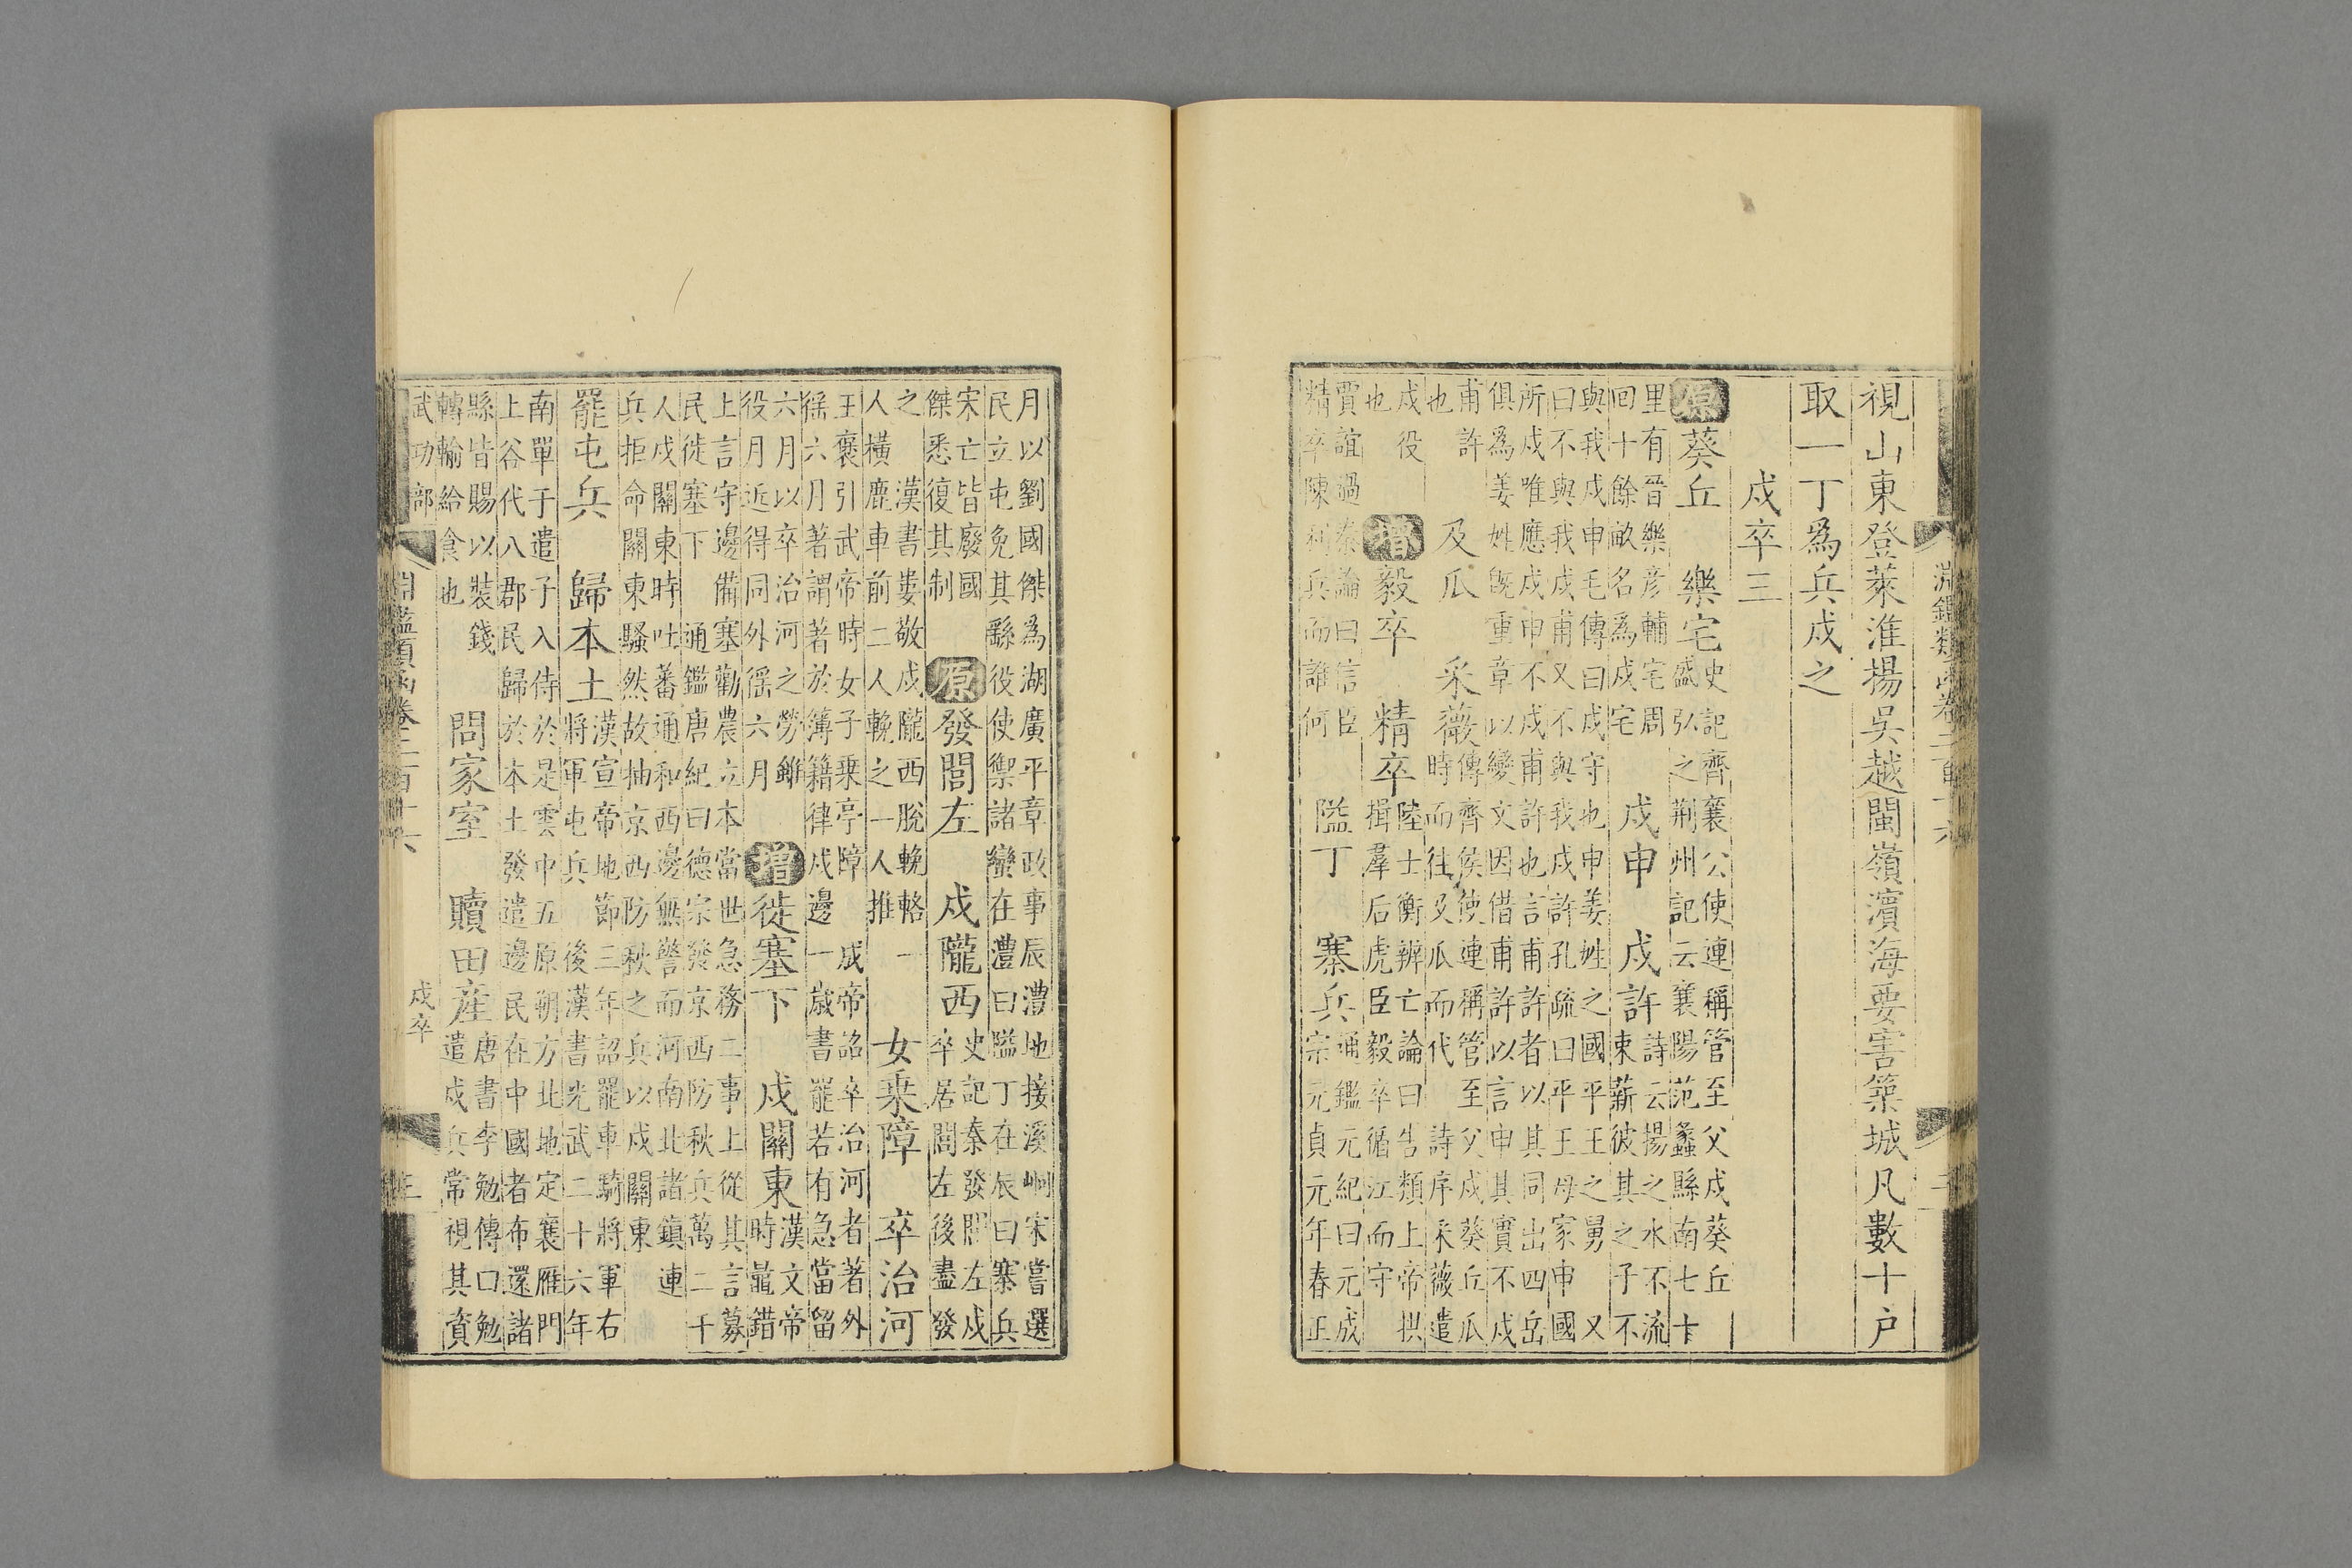 淵鑑類函卷二百十六 二
視山東登萊淮揚吳越閩嶺濱海要害築城凡數十戶
取一丁爲兵戍之
戍卒三
原 葵丘 樂宅 史記齊襄公使連稱管至父戍葵丘
盛弘之荆州記云襄陽范蠡縣南七十
里有晉樂彥輔宅周
回十餘畝名爲戍宅 戍申 戍許 詩云揚之水不流
束薪彼其之子不
與我戍申毛傳曰戍守也申姜姓之國平王之舅又
曰不與我戍甫又不與我戍許孔疏曰平王母家申國
所戍唯應戍申不戍甫許也言甫許者以其同出四岳
俱爲姜姓旣重章以變文因借甫許以言申其實不戍
甫許
也 及瓜 采薇 傳齊侯使連稱管至父戍葵丘瓜
時而往及瓜而代 詩序采薇遣
戍役
也 增 毅卒 精卒 陸士衡辨亡論曰告類上帝拱
揖羣后虎臣毅卒循江而守
賈誼過秦論曰信臣
精卒陳利兵而誰何 隘丁 寨兵 通鑑元紀曰元成
宗元貞元年春正
月以劉國傑爲湖廣平章政事辰澧地接溪峒宋嘗選
民立屯免其繇役使禦諸蠻在澧曰隘丁在辰曰寨兵
宋亡皆廢國
傑悉復其制 原 發閭左 戍隴西 史記秦發閭左戍
卒居閭左後盡發
之 漢書婁敬戍隴西脫輓輅 一
人橫鹿車前二人輓之一人推 女乗障 卒治河
王褒引武帝時女子乗亭障 成帝詔卒治河者著外
徭六月著謂著於簿籍律戍邊一歲書罷若有急當留
六月以卒治河之勞雖
役月近得同外徭六月 增 徙塞下 戍關東 漢文帝
時鼂錯
上言守邊備塞勸農立本當世急務二事上從其言募
民徙塞下 通鑑唐紀曰德宗發京西防秋兵萬二千
人戍關東時吐蕃通和西邊無警而河南北諸鎮連
兵拒命關東騷然故抽京西防秋之兵以戍關東
罷屯兵 歸本土 漢宣帝地節三年詔罷車騎將軍右
將軍屯兵 後漢書光武二十六年
南單于遣子入侍於是雲中五原朔方北地定襄雁門
上谷代八郡民歸於本土發遣邊民在中國者布還諸
縣皆賜以裝錢
轉輸給食也 問家室 贖田産 唐書李勉傳曰勉
遣戍兵常視其資
武功部 淵鑑類函卷二百十六 戍卒 三